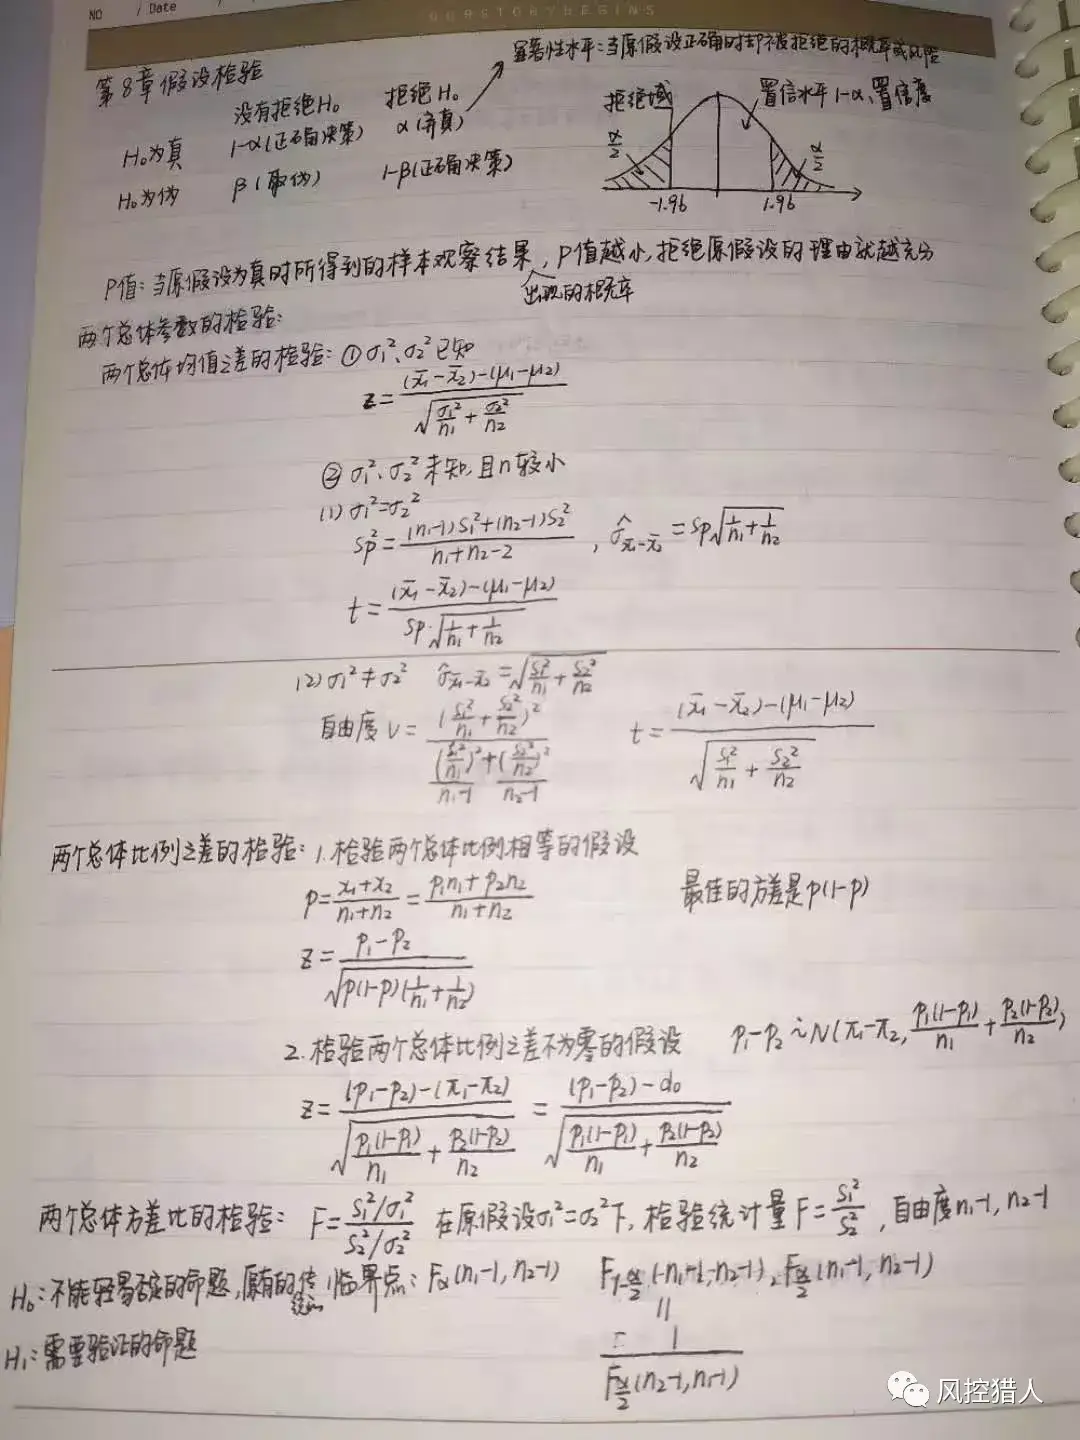 NO / Date
OURSTORYBEGINS
第8章假设检验
显著性水平:当原假设正确时却被拒绝的概率或风险
没有拒绝H₀ 拒绝H₀
H₀为真 1-α(正确决策) α(弃真)
H₀为伪 β(取伪) 1-β(正确决策)
拒绝域 置信水平1-α、置信度
α/2 α/2
-1.96 1.96
P值:当原假设为真时所得到的样本观察结果,P值越小,拒绝原假设的理由就越充分
出现的概率
两个总体参数的检验:
两个总体均值之差的检验:① σ₁²、σ₂²已知
z=((x̄₁-x̄₂)-(μ₁-μ₂))/√(σ₁²/n₁+σ₂²/n₂)
② σ₁²、σ₂²未知,且n较小
(1) σ₁²=σ₂²
sp²=((n₁-1)s₁²+(n₂-1)s₂²)/(n₁+n₂-2), σ̂x̄₁-x̄₂=sp√(1/n₁+1/n₂)
t=((x̄₁-x̄₂)-(μ₁-μ₂))/(sp·√(1/n₁+1/n₂))
(2) σ₁²≠σ₂² σ̂x̄₁-x̄₂=√(s₁²/n₁+s₂²/n₂)
自由度 v=(s₁²/n₁+s₂²/n₂)²/((s₁²/n₁)²/(n₁-1)+(s₂²/n₂)²/(n₂-1)) t=((x̄₁-x̄₂)-(μ₁-μ₂))/√(s₁²/n₁+s₂²/n₂)
两个总体比例之差的检验:1.检验两个总体比例相等的假设
p=(x₁+x₂)/(n₁+n₂)=(p₁n₁+p₂n₂)/(n₁+n₂) 最佳的方差是p(1-p)
z=(p₁-p₂)/√(p(1-p)(1/n₁+1/n₂))
2.检验两个总体比例之差不为零的假设 p₁-p₂~N(π₁-π₂, p₁(1-p₁)/n₁+p₂(1-p₂)/n₂)
z=((p₁-p₂)-(π₁-π₂))/√(p₁(1-p₁)/n₁+p₂(1-p₂)/n₂)=((p₁-p₂)-d₀)/√(p₁(1-p₁)/n₁+p₂(1-p₂)/n₂)
两个总体方差比的检验: F=(s₁²/σ₁²)/(s₂²/σ₂²) 在原假设σ₁²=σ₂²下,检验统计量F=s₁²/s₂²,自由度n₁-1,n₂-1
H₀:不能轻易否定的命题,原有的传统
临界点:Fα(n₁-1,n₂-1) F1-α/2(n₁-1,n₂-1),Fα/2(n₁-1,n₂-1)
H₁:需要验证的命题
=
1/Fα/2(n₂-1,n₁-1)
风控猎人